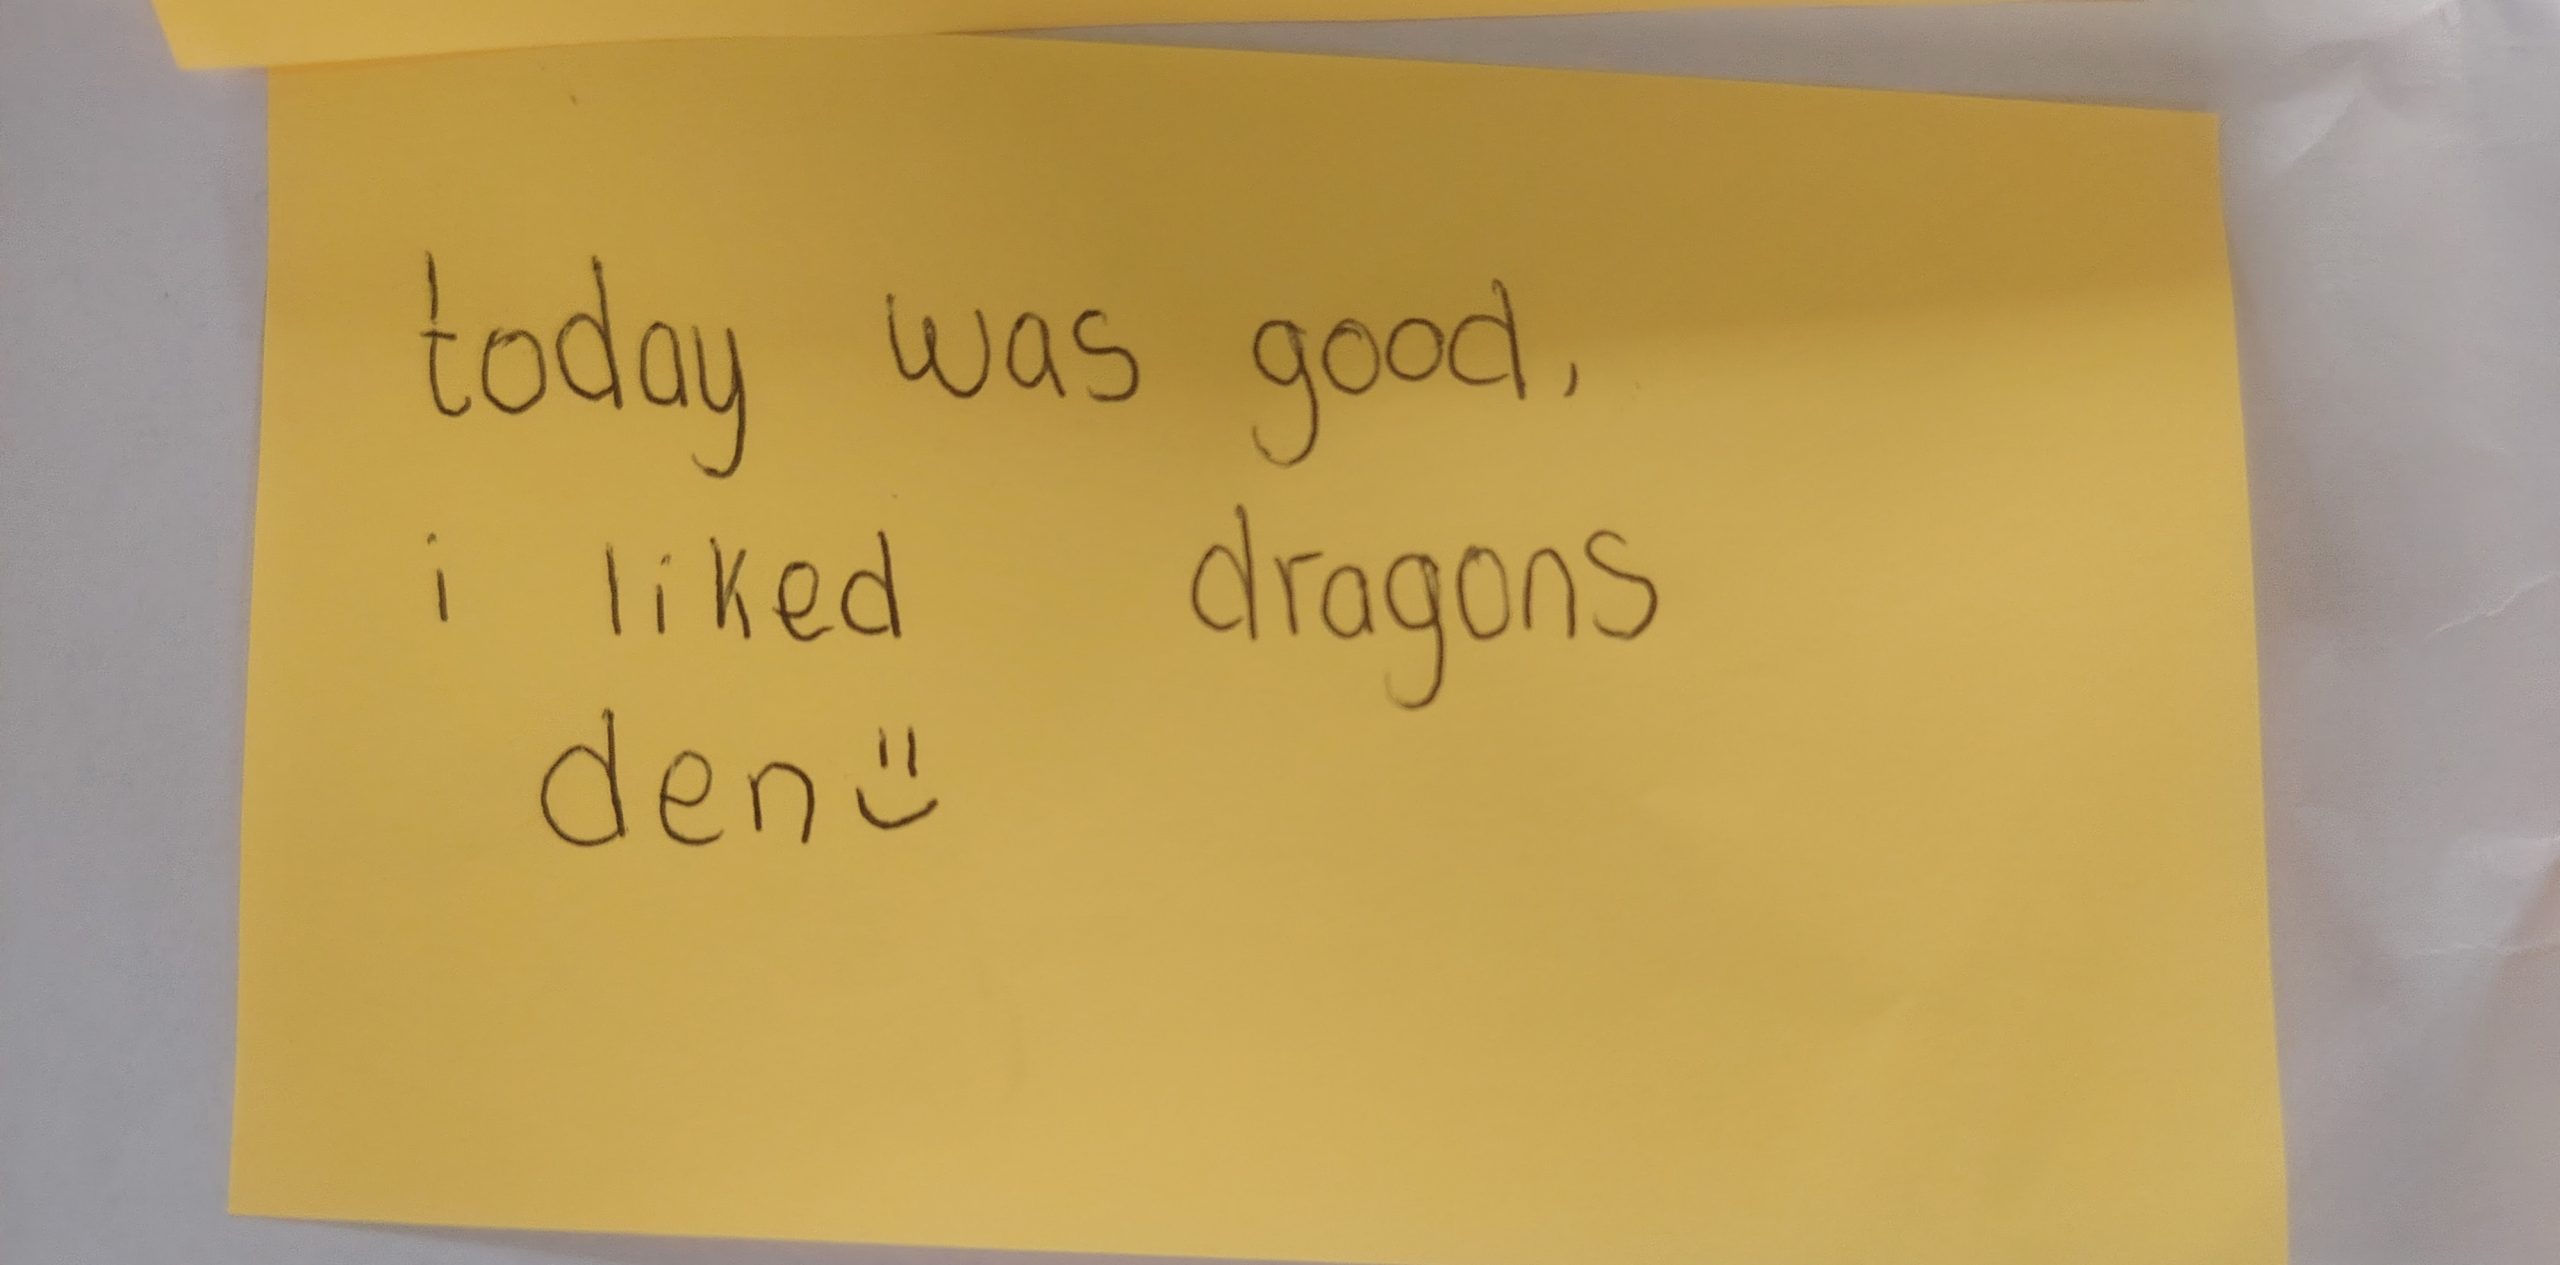 today was good,
i liked dragons
den